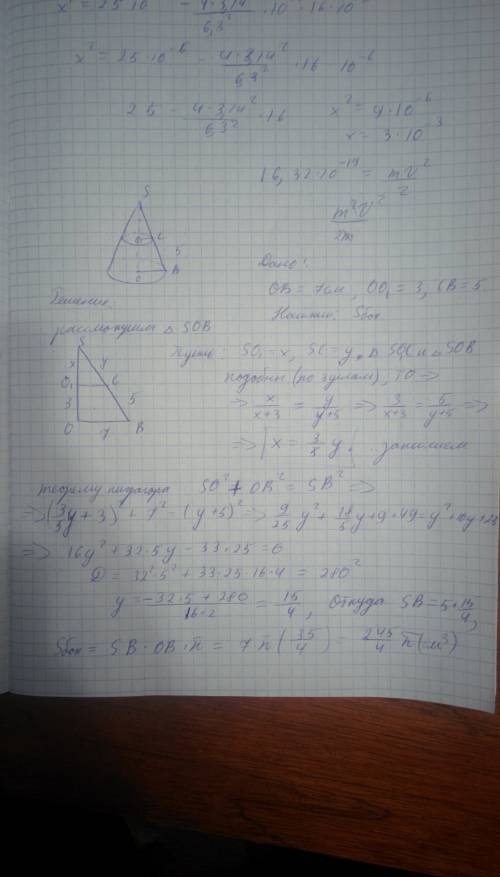 x² = 25·10 - 4·3,14² / 6,3² ·10 ·16·10
x² = 25·10⁻⁶ - 4·3,14² / 6,3² ·16 10⁻⁶
25 - 4·3,14² / 6,3² ·16
x² = 9·10⁻⁶
x = 3·10⁻³
16,32·10⁻¹⁹ = mV² / 2
m²V² / 2m
S
O₁ C
5
O B
Дано:
OB = 7см, OO₁ = 3, CB = 5
Найти: Sбок
Решение
рассмотрим △ SOB
S
x y
O₁ C
3 5
O 7 B
Пусть: SO₁ = x, SC = y, △ SO₁C и △ SOB
подобны (по 2 углам), то ⇒
⇒ x / x+3 = y / y+5 ⇒ 3 / x+3 = 5 / y+5 ⇒
⇒ x = 3/5 y, запишем
теорему пифагора SO² + OB² = SB² ⇒
⇒ (3/5 y + 3)² + 7² = (y+5)² ⇒ 9/25 y² + 18/5 y + 9 + 49 = y² + 10y + 25
⇒ 16y² + 32·5y - 33·25 = 0
D = 32²·5² + 33·25·16·4 = 280²
y = -32·5 + 280 / 16·2 = 15/4, Откуда SB = 5 + 15/4,
Sбок = SB · OB · π = 7π (35/4) = 245/4 π (см²)